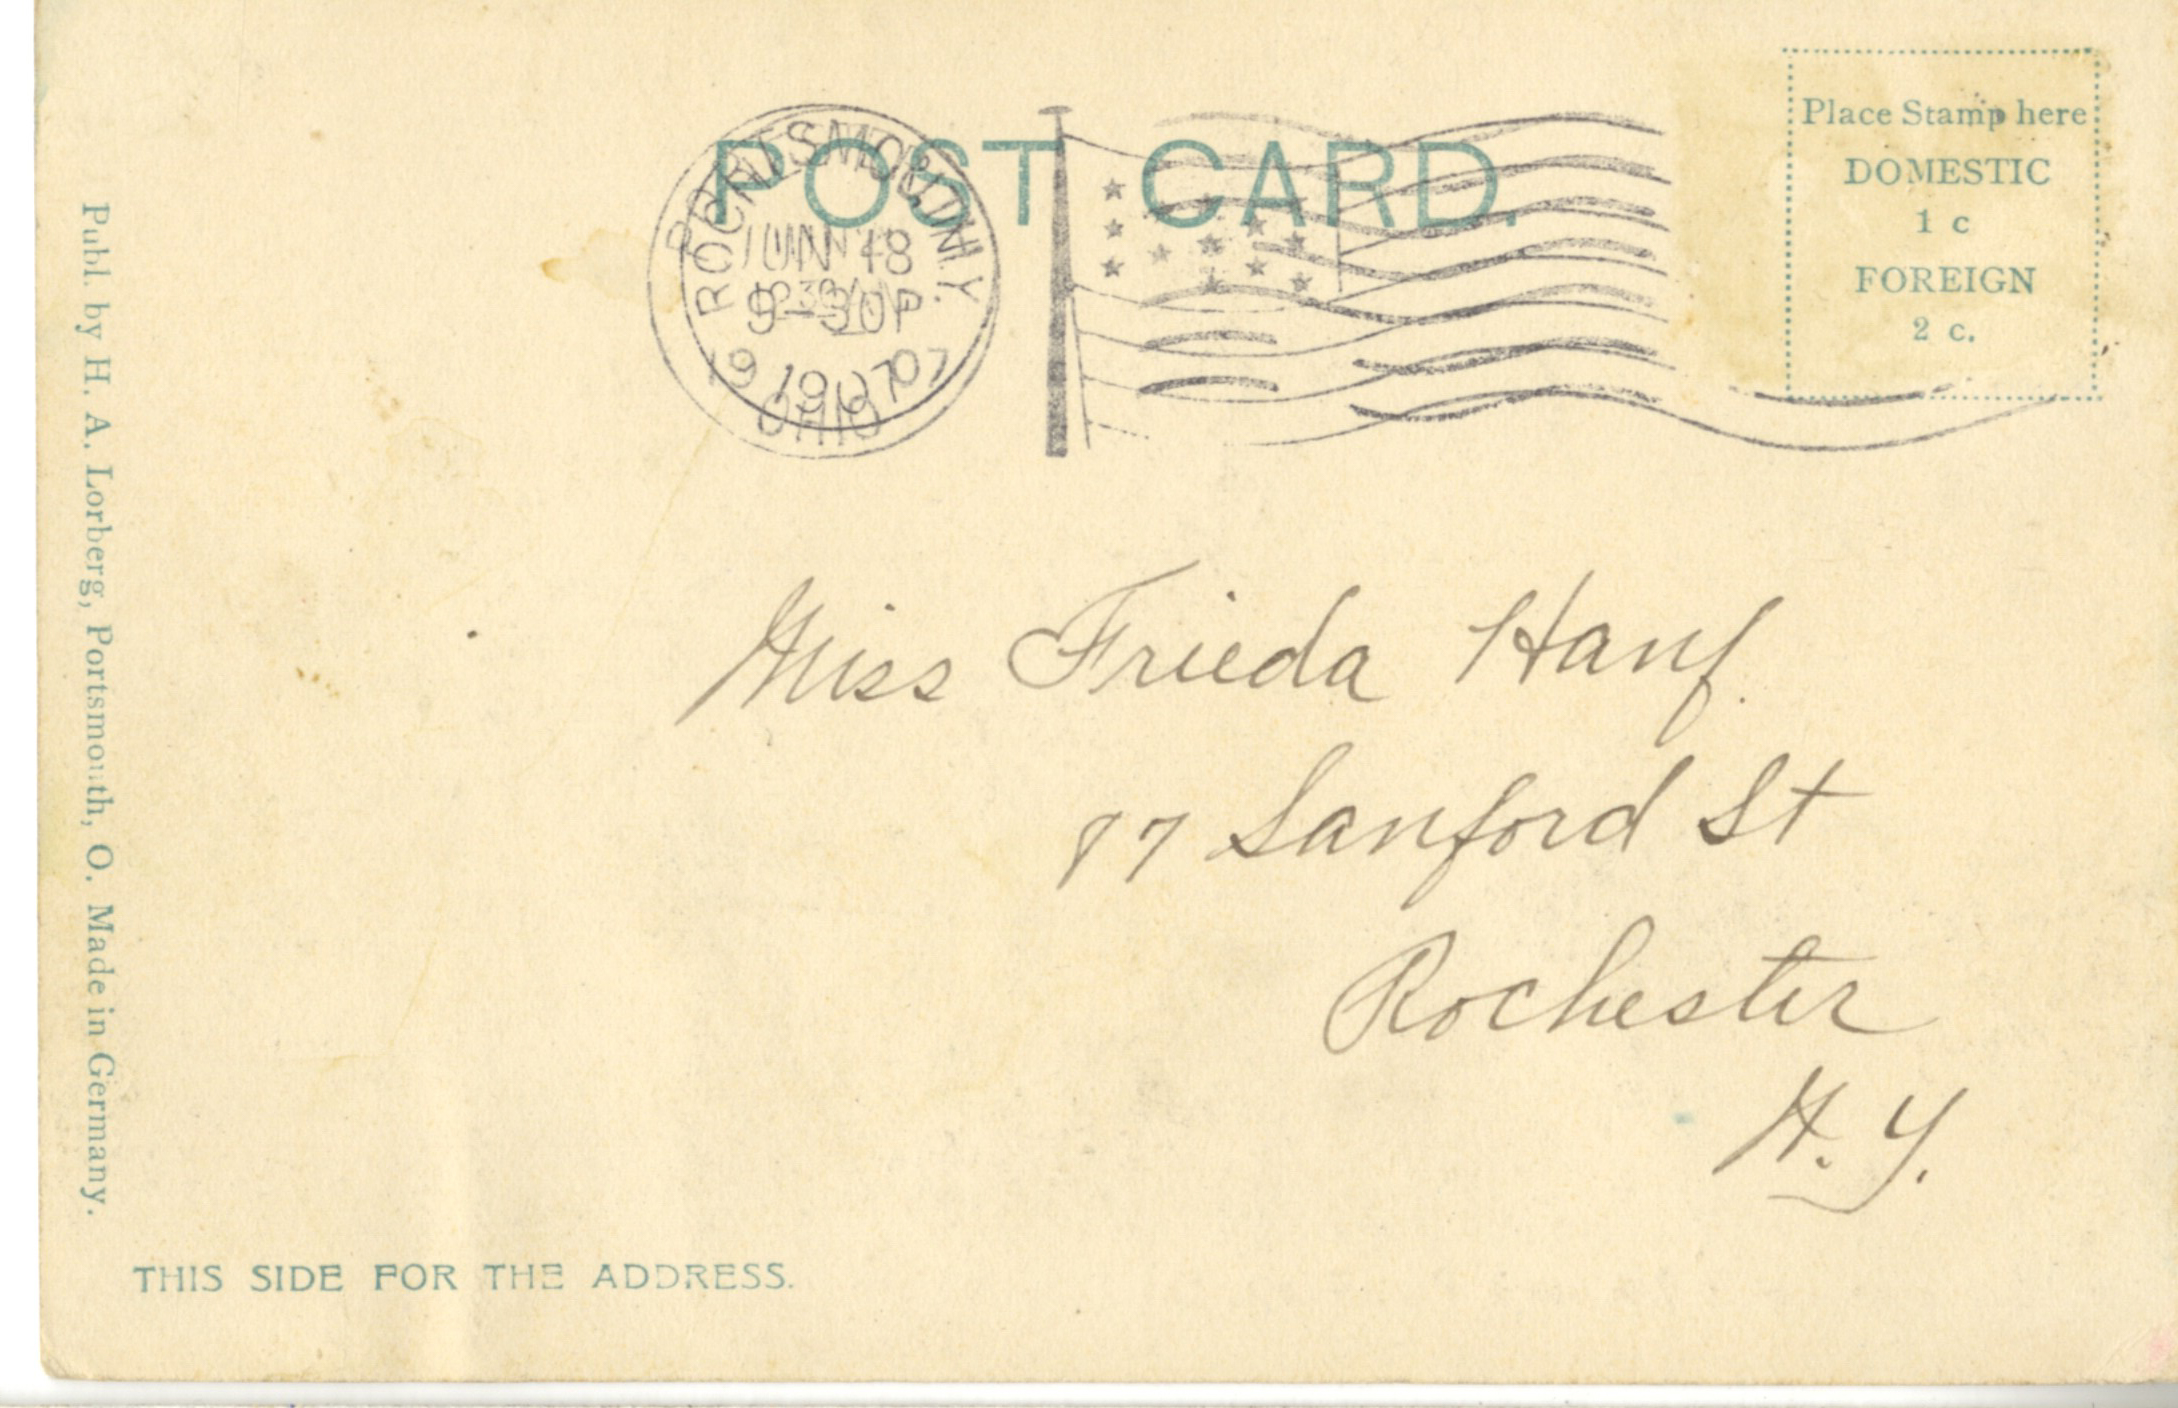 POST CARD.
Place Stamp here
DOMESTIC
1 c
FOREIGN
2 c.
PORTSMOUTH
JUN 18
9-30P
1907
OHIO
Miss Frieda Hanf
87 Sanford St
Rochester
N.Y.
Publ. by H. A. Lorberg, Portsmouth, O. Made in Germany.
THIS SIDE FOR THE ADDRESS.